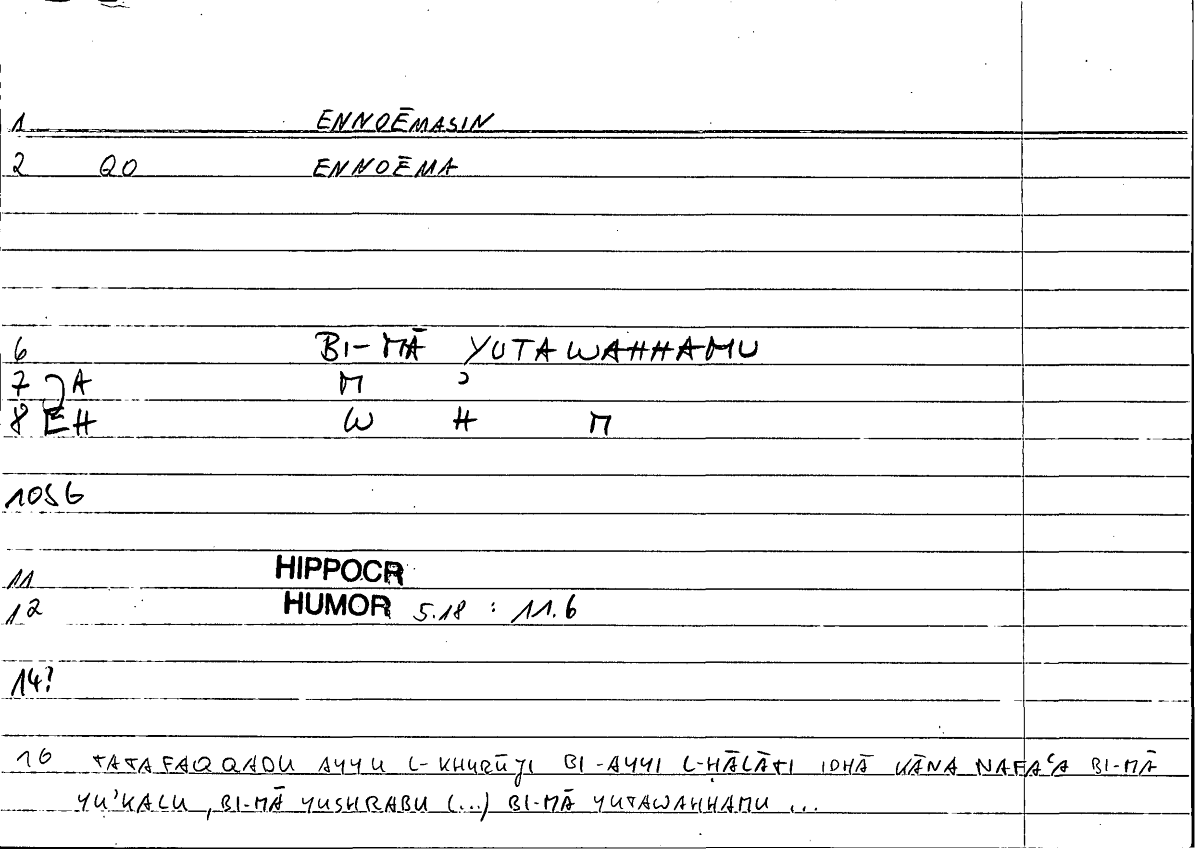 1 ENNOĒMASIN
2 QO ENNOĒMA
6 BI-MĀ YUTAWAHHAMU
7 A M ɔ
8 EH W H M
10 S 6
11 HIPPOCR
12 HUMOR 5.18 : 11.6
14?
16 TATAFAQQADU AYYU L-KHURŪJI BI-AYYI L-ḤĀLĀTI IDHĀ KĀNA NAFAʿA BI-MĀ
YU'KALU, BI-MĀ YUSHRABU (...) BI-MĀ YUTAWAHHAMU ...